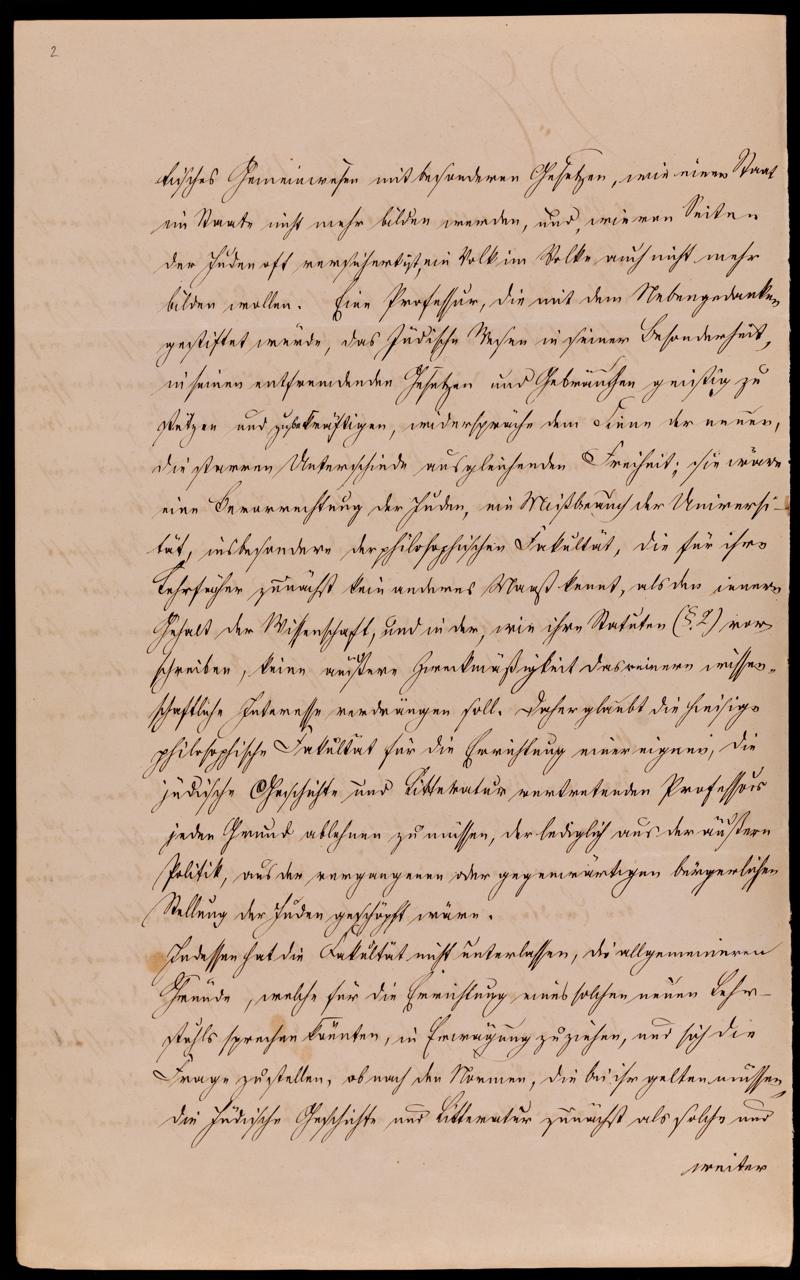 2
tisches Gemeinwesen mit besonderen Gesetzen, wie einen Staat
im Staate nicht mehr bilden werden, und, wie von Seiten
der Juden oft versichert ist, ein Volk im Volke auch nicht mehr
bilden wollen. Eine Professur, die mit dem Nebengedanken
gestiftet würde, das Jüdische Wesen in seiner Besonderheit,
in seinen entfremdenden Gesetzen und Gebräuchen geistig zu
stützen und zu bekräftigen, widerspräche dem Sinne der neuen,
die starren Unterschiede ausgleichenden Freiheit; sie wäre
eine Bevorrechtung der Juden, ein Mißbrauch der Universi-
tät, insbesondere der philosophischen Fakultät, die für ihre
Lehrfächer zunächst kein anderes Maaß kennt, als den innern
Gehalt der Wissenschaft, und in der, wie ihre Statuten (§. 2) vor
schreiben, keine äußere Zweckmäßigkeit das reinere wissen-
schaftliche Interesse verdrängen soll. Daher glaubt die hiesige
philosophische Fakultät für die Errichtung einer eignen, die
jüdische Geschichte und Litteratur vertretenden Professur
jeden Grund ablehnen zu müssen, der lediglich aus der äußern
Politik, aus der vergangenen oder gegenwärtigen bürgerlichen
Stellung der Juden geschöpft wäre.
Indessen hat die Fakultät nicht unterlassen, die allgemeineren
Gründe, welche für die Errichtung eines solchen neuen Lehr-
stuhls sprechen könnten, in Erwägung zu ziehen, und sich die
Frage zu stellen, ob nach den Normen, die bei ihr gelten müssen,
die Jüdische Geschichte und Litteratur zunächst als solche und
weiter